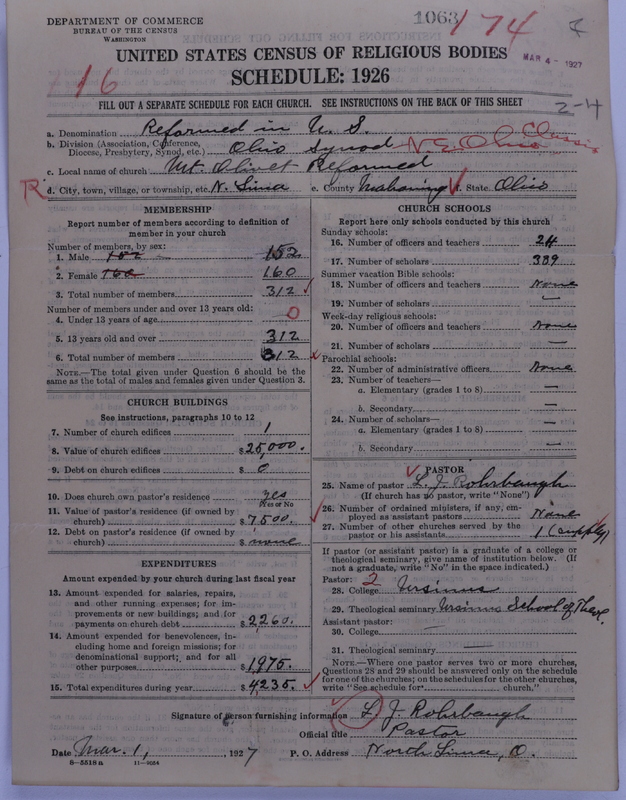 DEPARTMENT OF COMMERCE
BUREAU OF THE CENSUS
WASHINGTON
1063 174
MAR 4 - 1927
UNITED STATES CENSUS OF RELIGIOUS BODIES
16
SCHEDULE: 1926
FILL OUT A SEPARATE SCHEDULE FOR EACH CHURCH. SEE INSTRUCTIONS ON THE BACK OF THIS SHEET
2-4
a. Denomination Reformed in U.S.
b. Division (Association, Conference, Diocese, Presbytery, Synod, etc.) Ohio Synod N E Ohio Classis
c. Local name of church Mt. Olivet Reformed
R d. City, town, village, or township, etc. N. Lima e. County Mahoning f. State Ohio
MEMBERSHIP
Report number of members according to definition of
member in your church
Number of members, by sex:
1. Male 152
2. Female 160
3. Total number of members 312
Number of members under and over 13 years old:
4. Under 13 years of age 0
5. 13 years old and over 312
6. Total number of members 312
NOTE.—The total given under Question 6 should be
same as the total of males and females given under Question 3.
CHURCH BUILDINGS
See instructions, paragraphs 10 to 12
7. Number of church edifices 1
8. Value of church edifices $25,000.
9. Debt on church edifices $ 0
10. Does church own pastor's residence yes
Yes or No
11. Value of pastor's residence (if owned by
church) $7500.
12. Debt on pastor's residence (if owned by
church) $ none
EXPENDITURES
Amount expended by your church during last fiscal year
13. Amount expended for salaries, repairs,
and other running expenses; for im-
provements or new buildings; and for
payments on church debt $2260.
14. Amount expended for benevolences, in-
cluding home and foreign missions; for
denominational support; and for all
other purposes $1975.
15. Total expenditures during year $4235.
CHURCH SCHOOLS
Report here only schools conducted by this church
Sunday schools:
16. Number of officers and teachers 24
17. Number of scholars 389
Summer vacation Bible schools:
18. Number of officers and teachers None
19. Number of scholars —
Week-day religious schools:
20. Number of officers and teachers None
21. Number of scholars —
Parochial schools:
22. Number of administrative officers None
23. Number of teachers—
a. Elementary (grades 1 to 8) —
b. Secondary —
24. Number of scholars—
a. Elementary (grades 1 to 8) —
b. Secondary —
PASTOR
25. Name of pastor L. J. Rohrbaugh
(If church has no pastor, write "None")
26. Number of ordained ministers, if any, em-
ployed as assistant pastors None
27. Number of other churches served by the
pastor or his assistants 1 (supply)
If pastor (or assistant pastor) is a graduate of a college or
theological seminary, give name of institution below. (If
not a graduate, write "No" in the space indicated.)
Pastor: 2
28. College Ursinus
29. Theological seminary Ursinus School of Theol.
Assistant pastor:
30. College —
31. Theological seminary —
NOTE.—Where one pastor serves two or more churches,
Questions 28 and 29 should be answered only on the schedule
for one of the churches; on the schedules for the other churches,
write "See schedule for church."
Signature of person furnishing information L. J. Rohrbaugh
Official title Pastor
Date Mar. 1, 1927 P. O. Address North Lima, O.
8-5518 a 11-9054